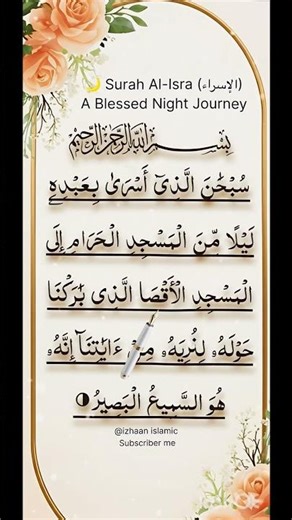 🌙 Surah Al-Isra (الإسراء)
A Blessed Night Journey
بِسْمِ اللَّهِ الرَّحْمَٰنِ الرَّحِيمِ
سُبْحَٰنَ الَّذِىٓ أَسْرَىٰ بِعَبْدِهِۦ
لَيْلًا مِّنَ الْمَسْجِدِ الْحَرَامِ إِلَى
الْمَسْجِدِ الْأَقْصَا الَّذِى بَٰرَكْنَا
حَوْلَهُۥ لِنُرِيَهُۥ مِنْ ءَايَٰتِنَآ إِنَّهُۥ
هُوَ السَّمِيعُ الْبَصِيرُ
@izhaan islamic
Subscriber me